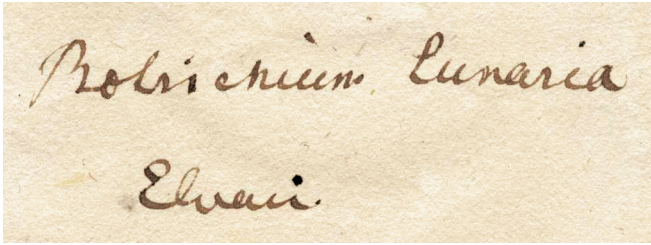 Botrichium Lunaria
Elvaci.